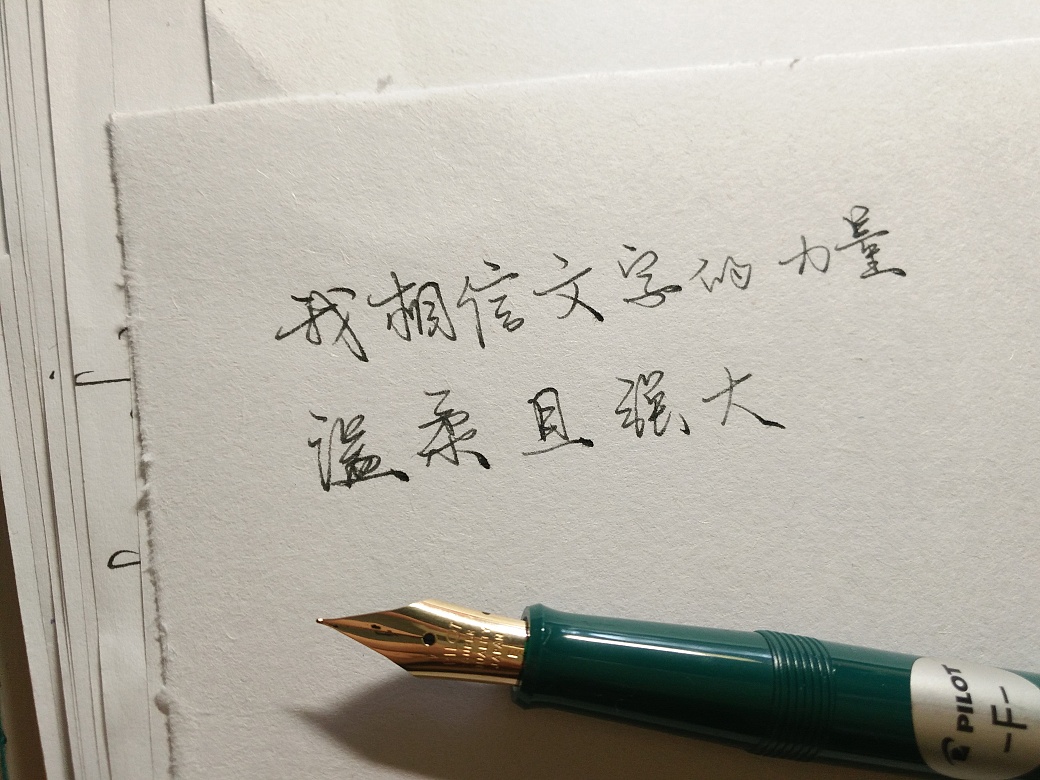 我相信文字的力量
温柔且强大
PILOT
-F-